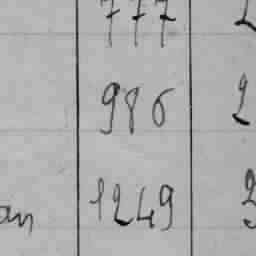 777 2
986 2
an 1249 2